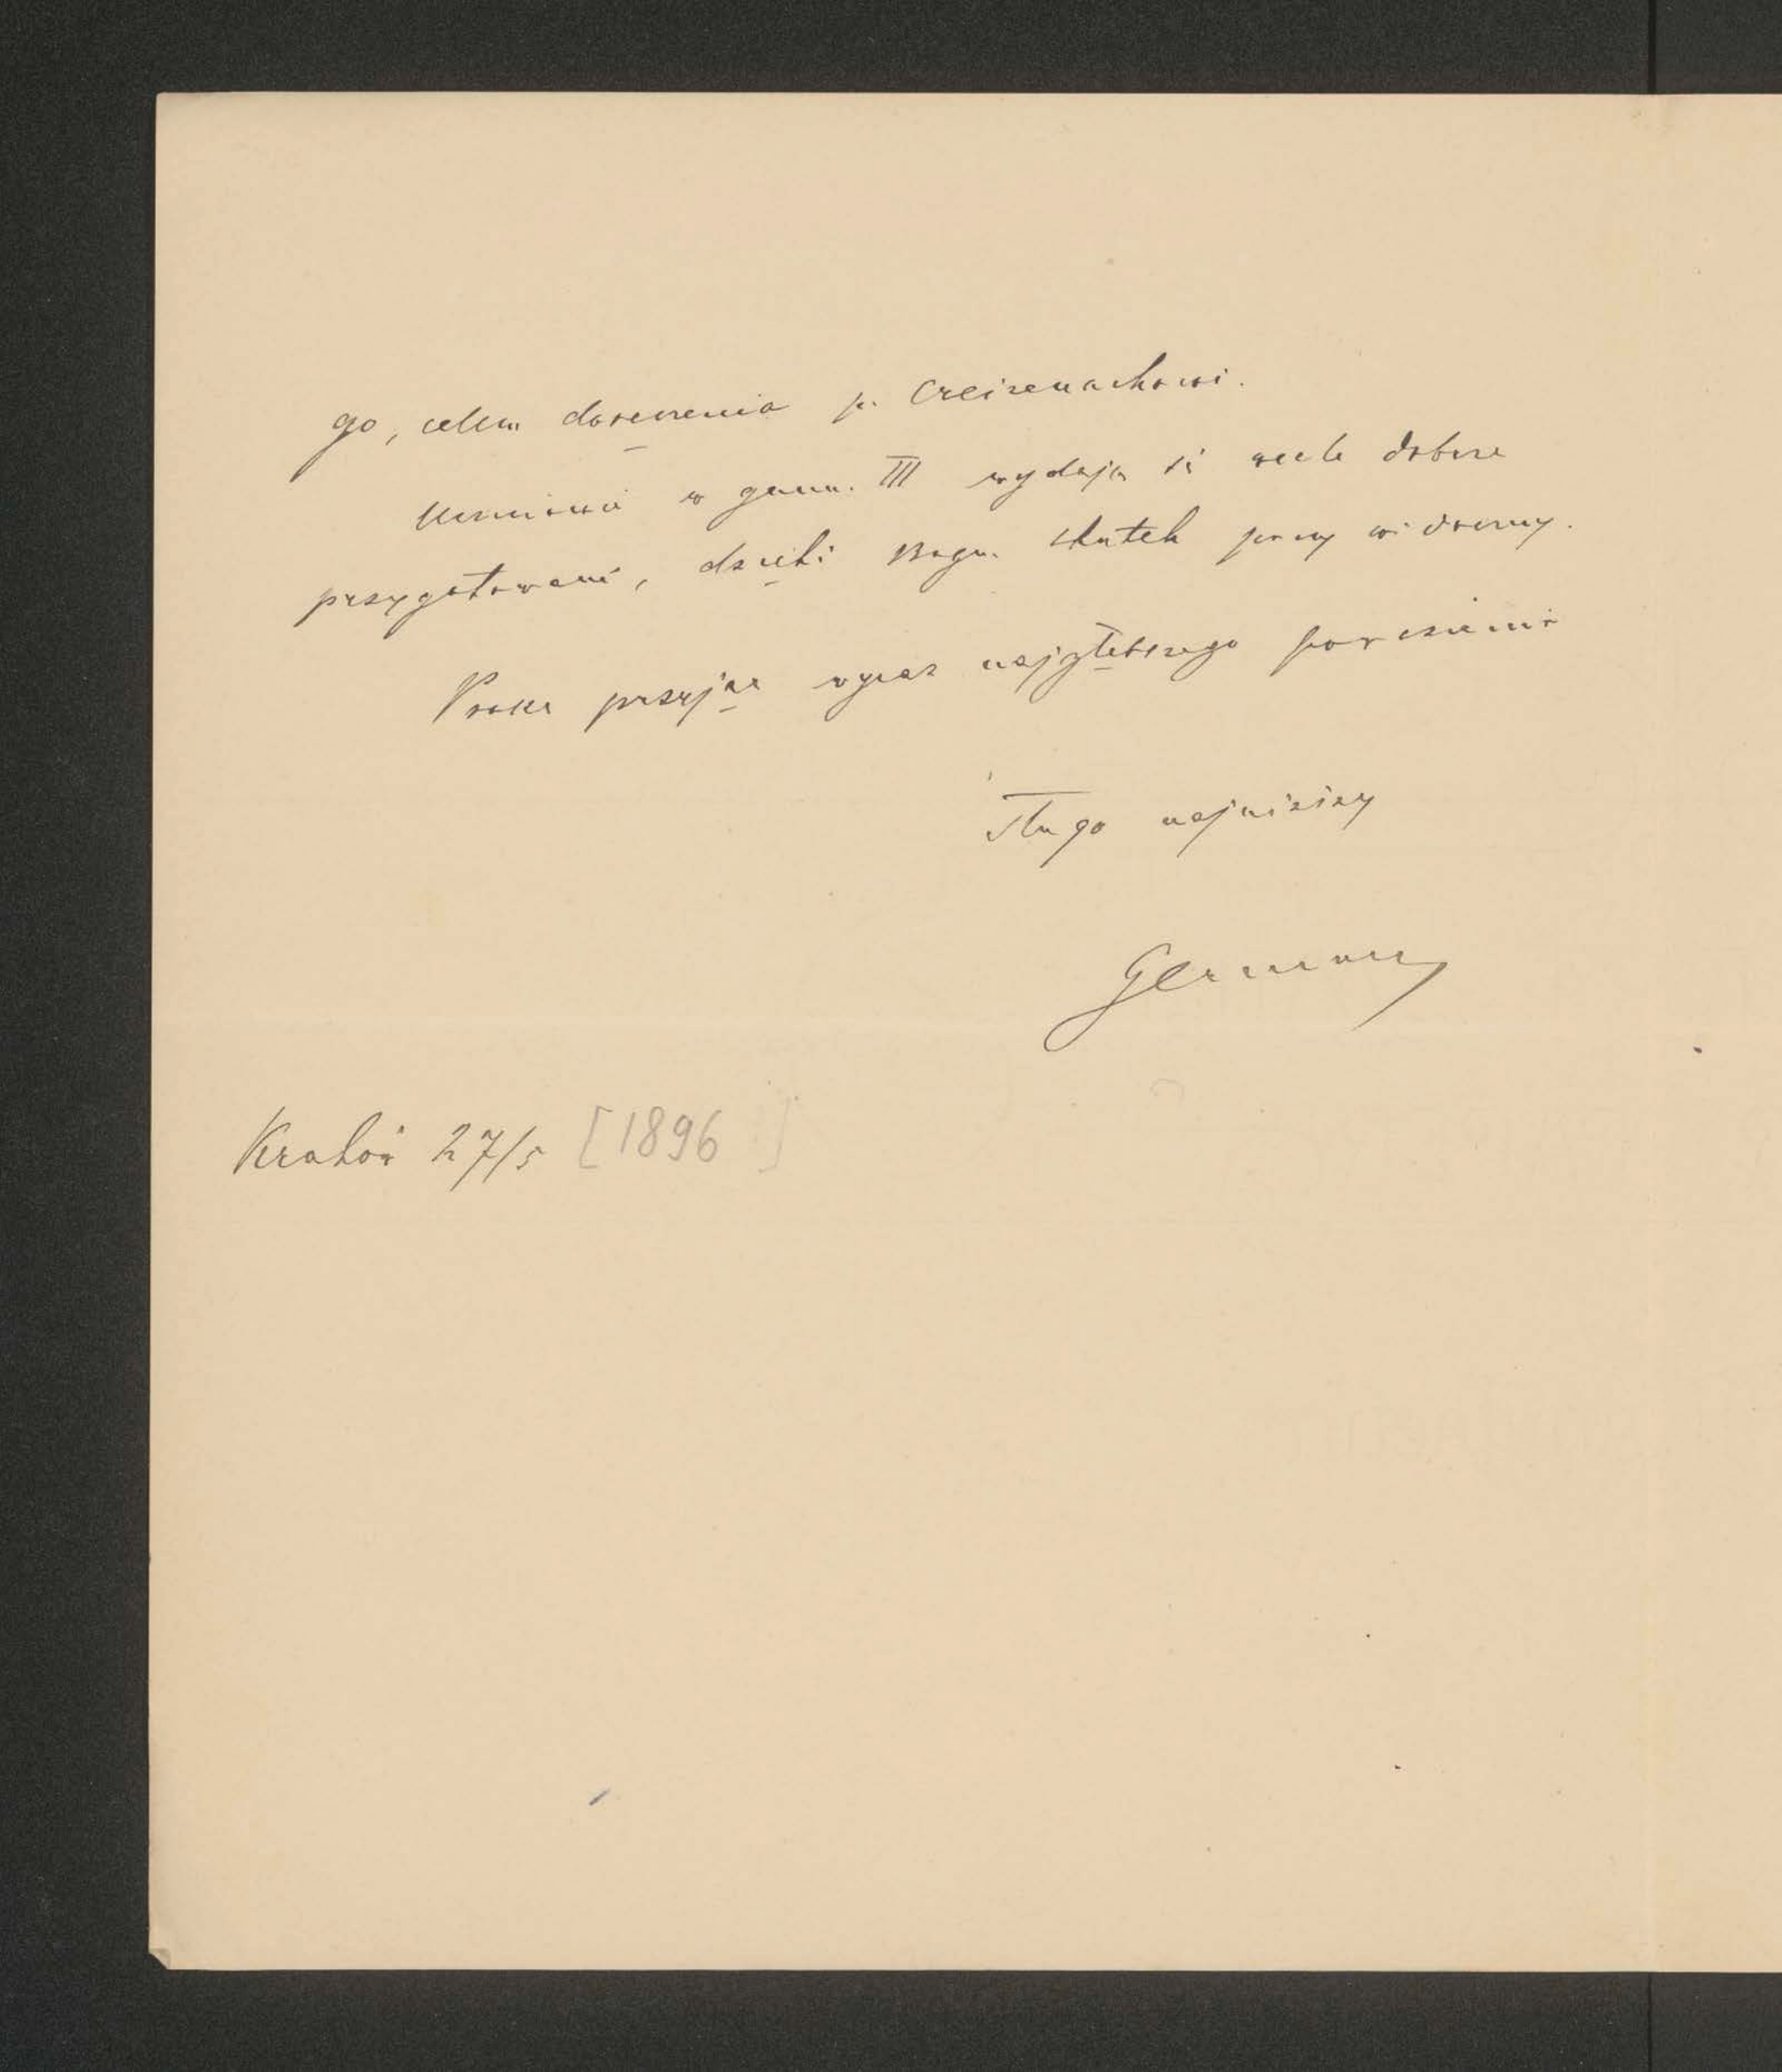 go, celem doręczenia p. Creizenachowi.
Uczniowie w gimn. III wydają się wcale dobrze
przygotowani, dzięki Bogu. skutek pracy widoczny.
Proszę przyjąć wyraz najgłębszego poważania
Sługa najniższy
German
Kraków 27/5 [1896]